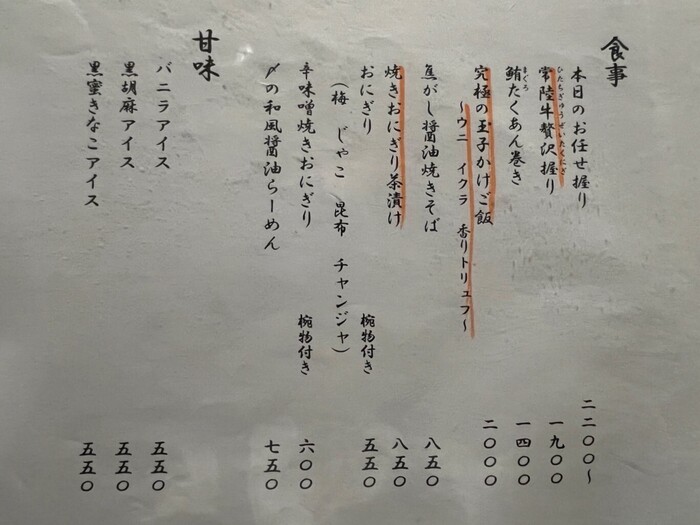 食事
本日のお任せ握り 二二〇〇～
常陸牛贅沢握り 一九〇〇
ひたちぎゅうぜいたくにぎ
鮪たくあん巻き 一四〇〇
まぐろ
究極の玉子かけご飯 二〇〇〇
～ウニ イクラ 香りトリュフ～
焦がし醤油焼きそば 八五〇
焼きおにぎり茶漬け 八五〇
おにぎり 椀物付き 五五〇
（梅 じゃこ 昆布 チャンジャ）
辛味噌焼きおにぎり 椀物付き 六〇〇
〆の和風醤油らーめん 七五〇
甘味
バニラアイス 五五〇
黒胡麻アイス 五五〇
黒蜜きなこアイス 五五〇